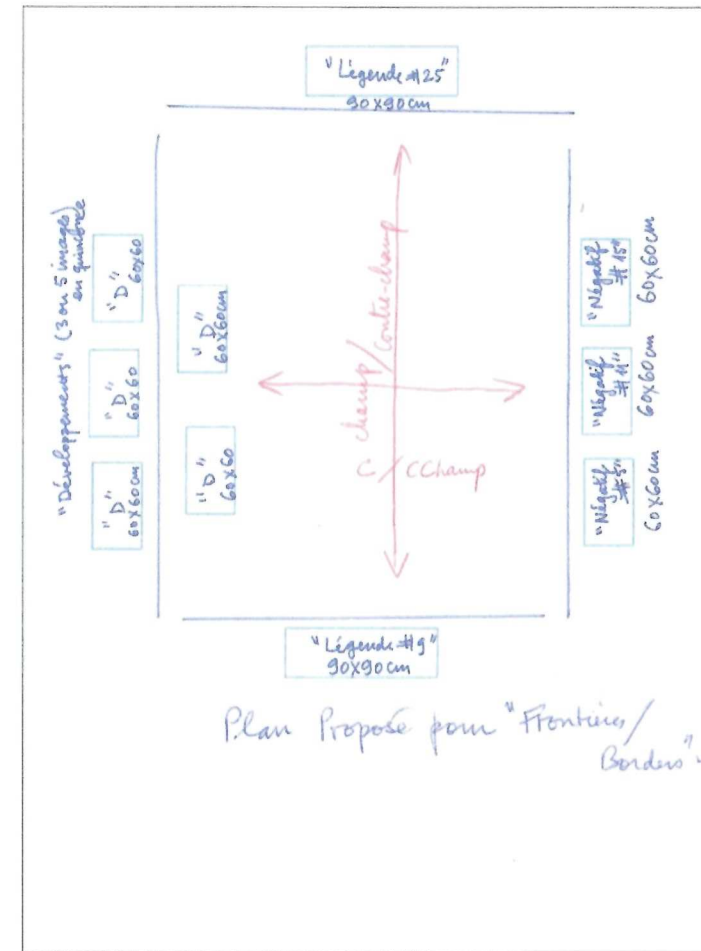 "Légende #25"
90x90cm
"Développements" (3 ou 5 images)
en quinconce
"D"
60x60
"D"
60x60
"D"
60x60cm
"D"
60x60cm
"D"
60x60
champ/contre-champ
C/CChamp
"Négatif
#15"
60x60cm
"Négatif
#11"
60x60cm
"Négatif
#5"
60x60cm
"Légende #9"
90x90cm
Plan Proposé pour "Frontières/
Borders".